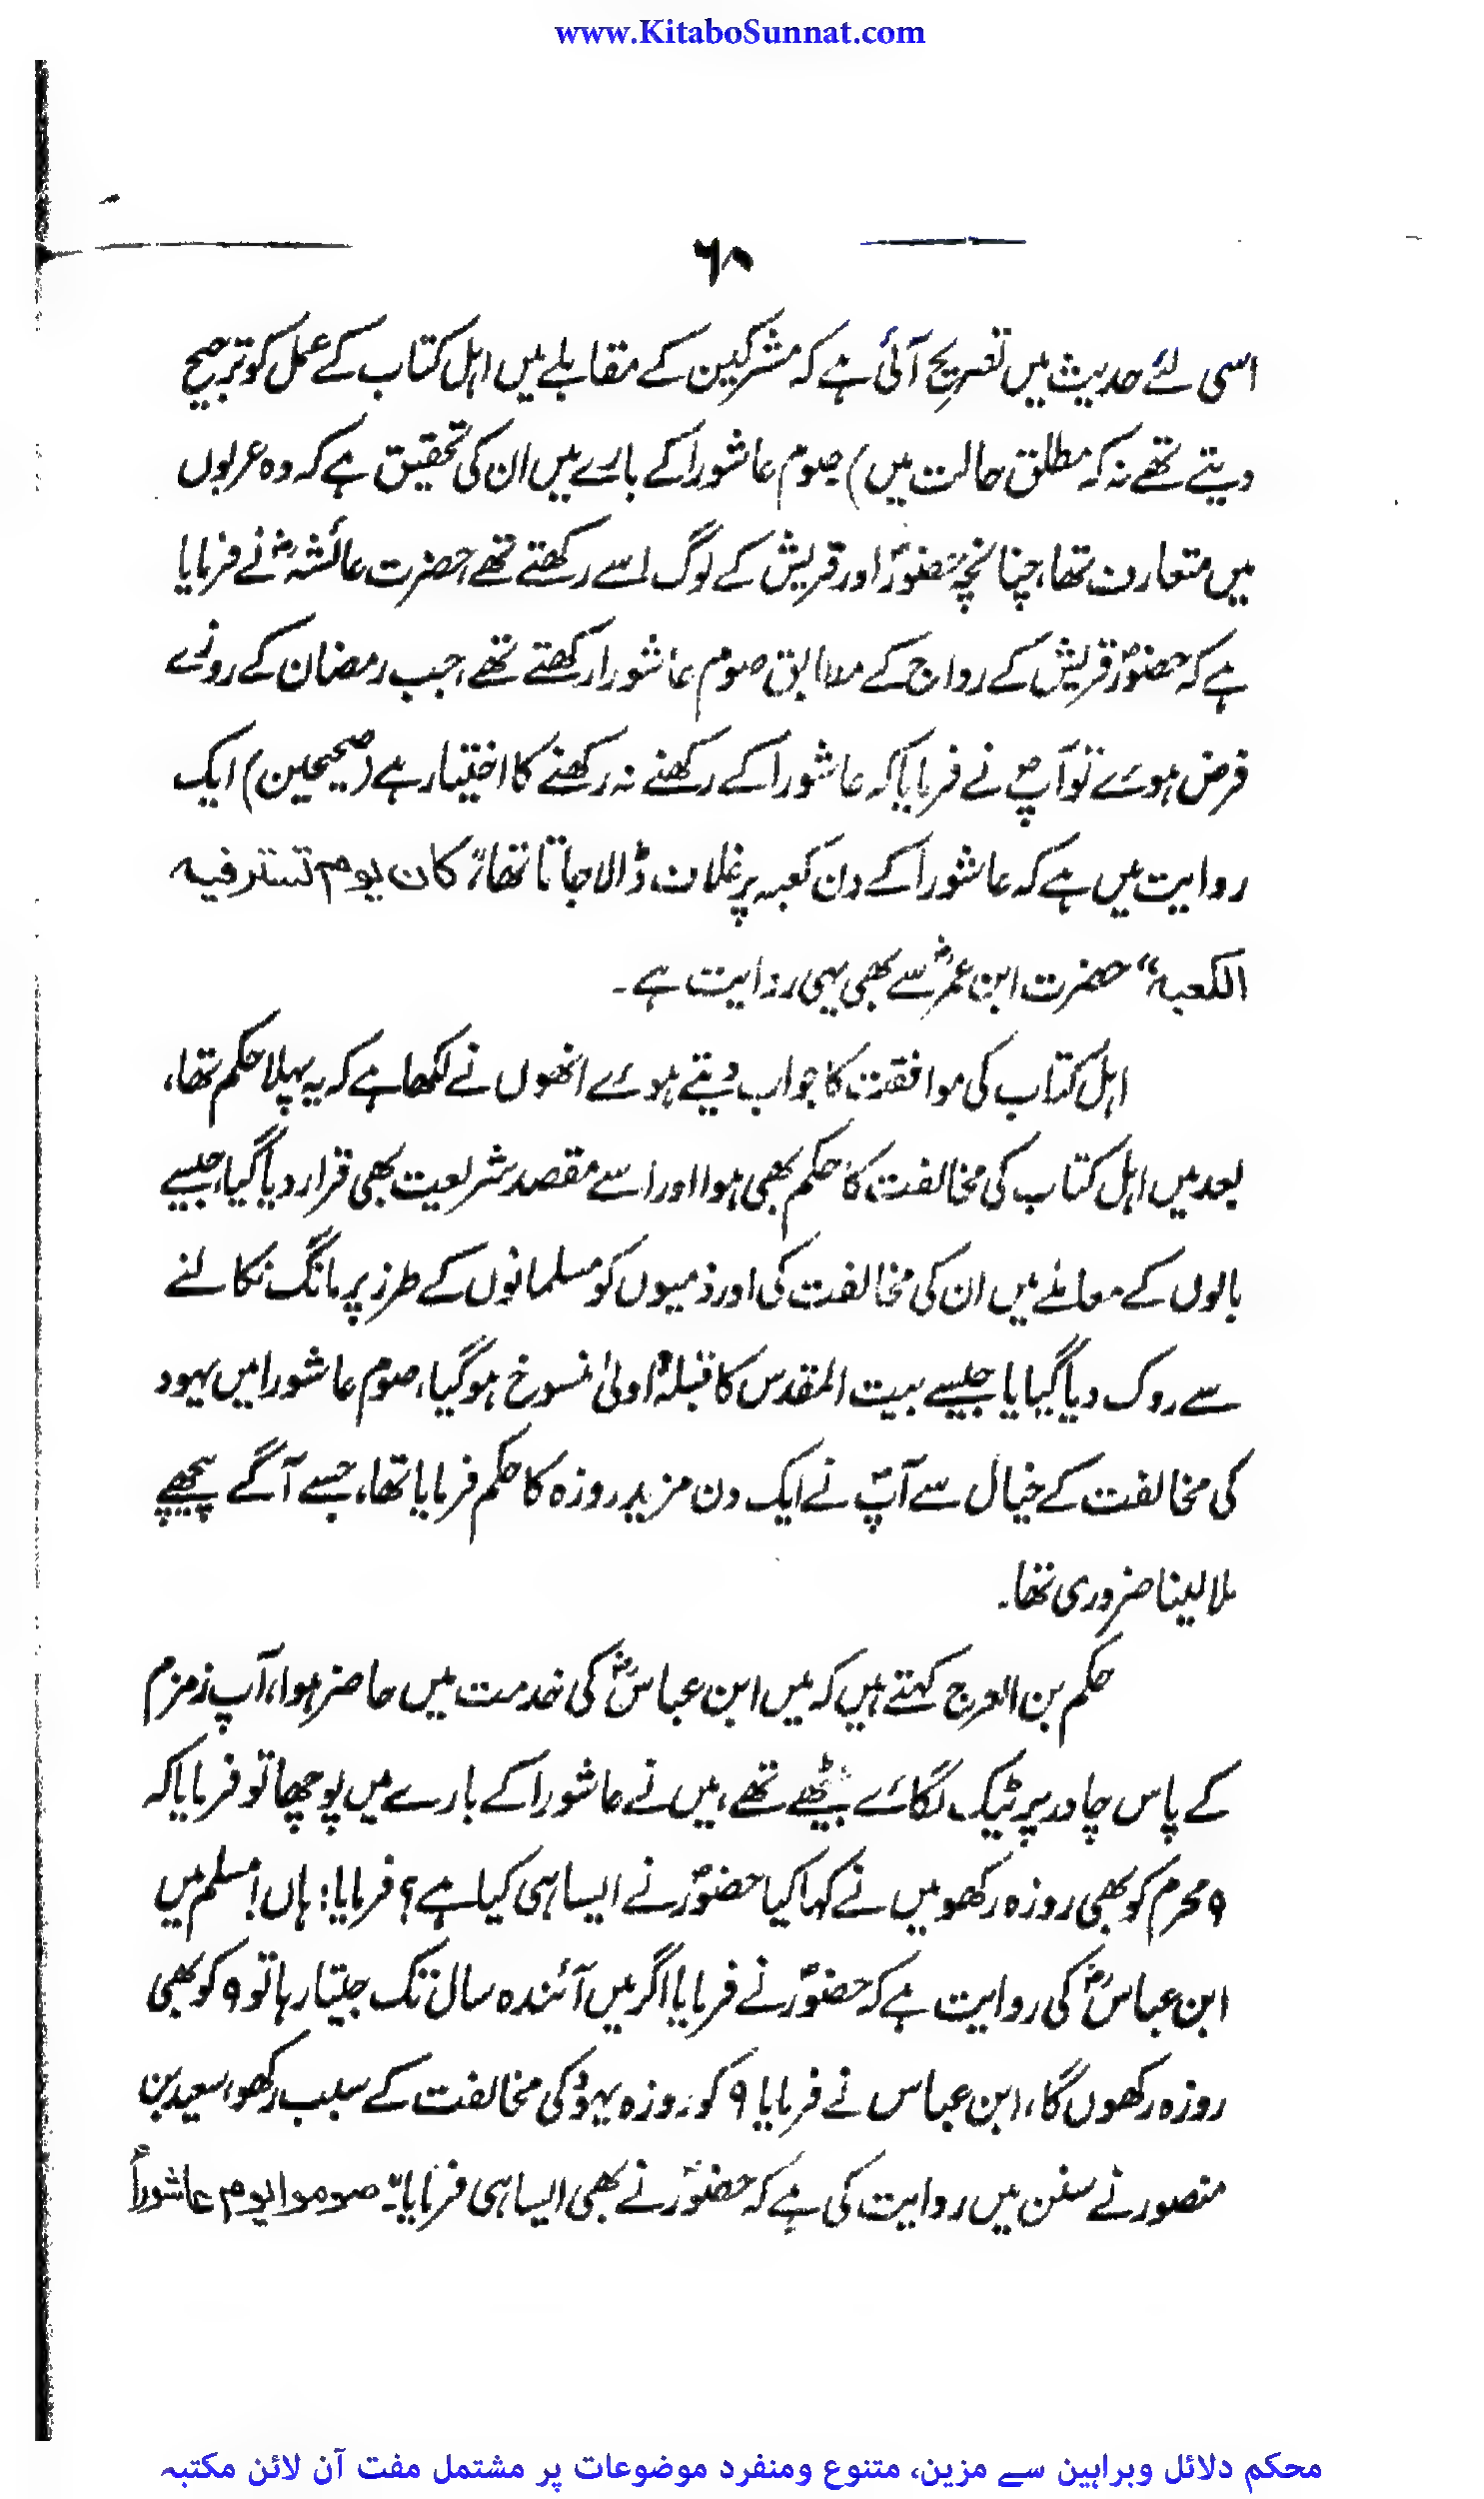 www.KitaboSunnat.com
۶۸
اسی لئے حدیث میں تصریح آئی ہے کہ مشرکین کے مقابلے میں اہل کتاب کے عمل کو ترجیح
دیتے تھے نہ کہ مطلق حالت میں) صوم عاشورا کے بارے میں ان کی تحقیق ہے کہ وہ عربوں
میں متعارف تھا، چنانچہ حضورؐ اور قریش کے لوگ اسے رکھتے تھے، حضرت عائشہؓ نے فرمایا
ہے کہ حضورؐ قریش کے رواج کے مطابق صوم عاشورا رکھتے تھے، جب رمضان کے روزے
فرض ہوئے تو آپؐ نے فرمایا کہ عاشورا کے رکھنے نہ رکھنے کا اختیار ہے (صحیحین) ایک
روایت میں ہے کہ عاشورا کے دن کعبہ پر غلاف ڈالا جاتا تھا "کان یوم تستر فیہ
الکعبہ" حضرت ابن عمرؓ سے بھی یہی روایت ہے۔
اہل کتاب کی موافقت کا جواب دیتے ہوئے انھوں نے لکھا ہے کہ یہ پہلا حکم تھا،
بعد میں اہل کتاب کی مخالفت کا حکم بھی ہوا اور اسے مقصد شریعت بھی قرار دیا گیا، جیسے
بالوں کے معاملے میں ان کی مخالفت کی اور ذمیوں کو مسلمانوں کے طرز پر مانگ نکالنے
سے روک دیا گیا یا جیسے بیت المقدس کا قبلۂ اولیٰ منسوخ ہوگیا، صوم عاشورا میں یہود
کی مخالفت کے خیال سے آپؐ نے ایک دن مزید روزہ کا حکم فرمایا تھا، جسے آگے پیچھے
ملا لینا ضروری تھا۔
حکم بن الاعرج کہتے ہیں کہ میں ابن عباسؓ کی خدمت میں حاضر ہوا، آپ زمزم
کے پاس چادر پر ٹیک لگائے بیٹھے تھے، میں نے عاشورا کے بارے میں پوچھا تو فرمایا کہ
۹ محرم کو بھی روزہ رکھو میں نے کہا کیا حضورؐ نے ایسا ہی کیا ہے؟ فرمایا: ہاں! مسلم میں
ابن عباسؓ کی روایت ہے کہ حضورؐ نے فرمایا اگر میں آئندہ سال تک جیتا رہا تو ۹ کو بھی
روزہ رکھوں گا، ابن عباس نے فرمایا ۹ کو روزہ یہود کی مخالفت کے سبب رکھو، سعید بن
منصور نے سنن میں روایت کی ہے کہ حضورؐ نے بھی ایسا ہی فرمایا: "صوموا یوم عاشوراً
محکم دلائل وبراہین سے مزین، متنوع ومنفرد موضوعات پر مشتمل مفت آن لائن مکتبہ